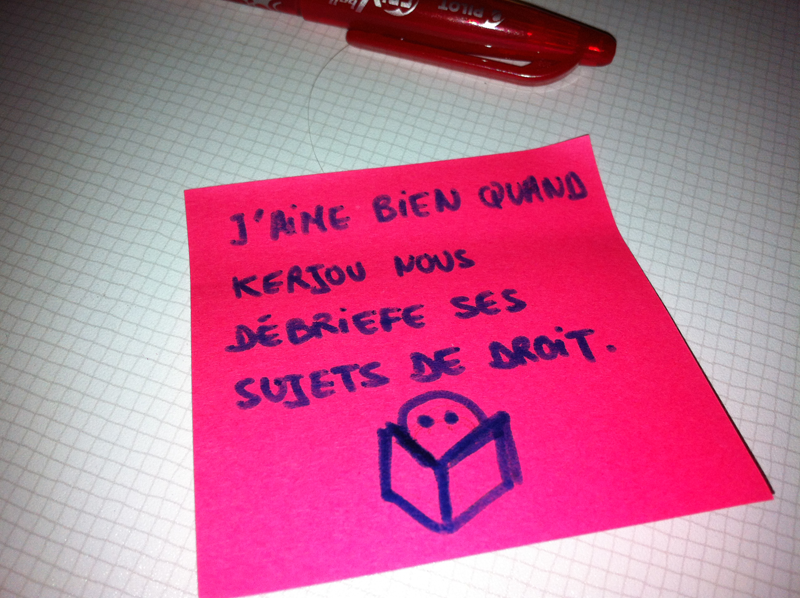 PILOT
J'AIME BIEN QUAND
KERJOU NOUS
DÉBRIEFE SES
SUJETS DE DROIT.